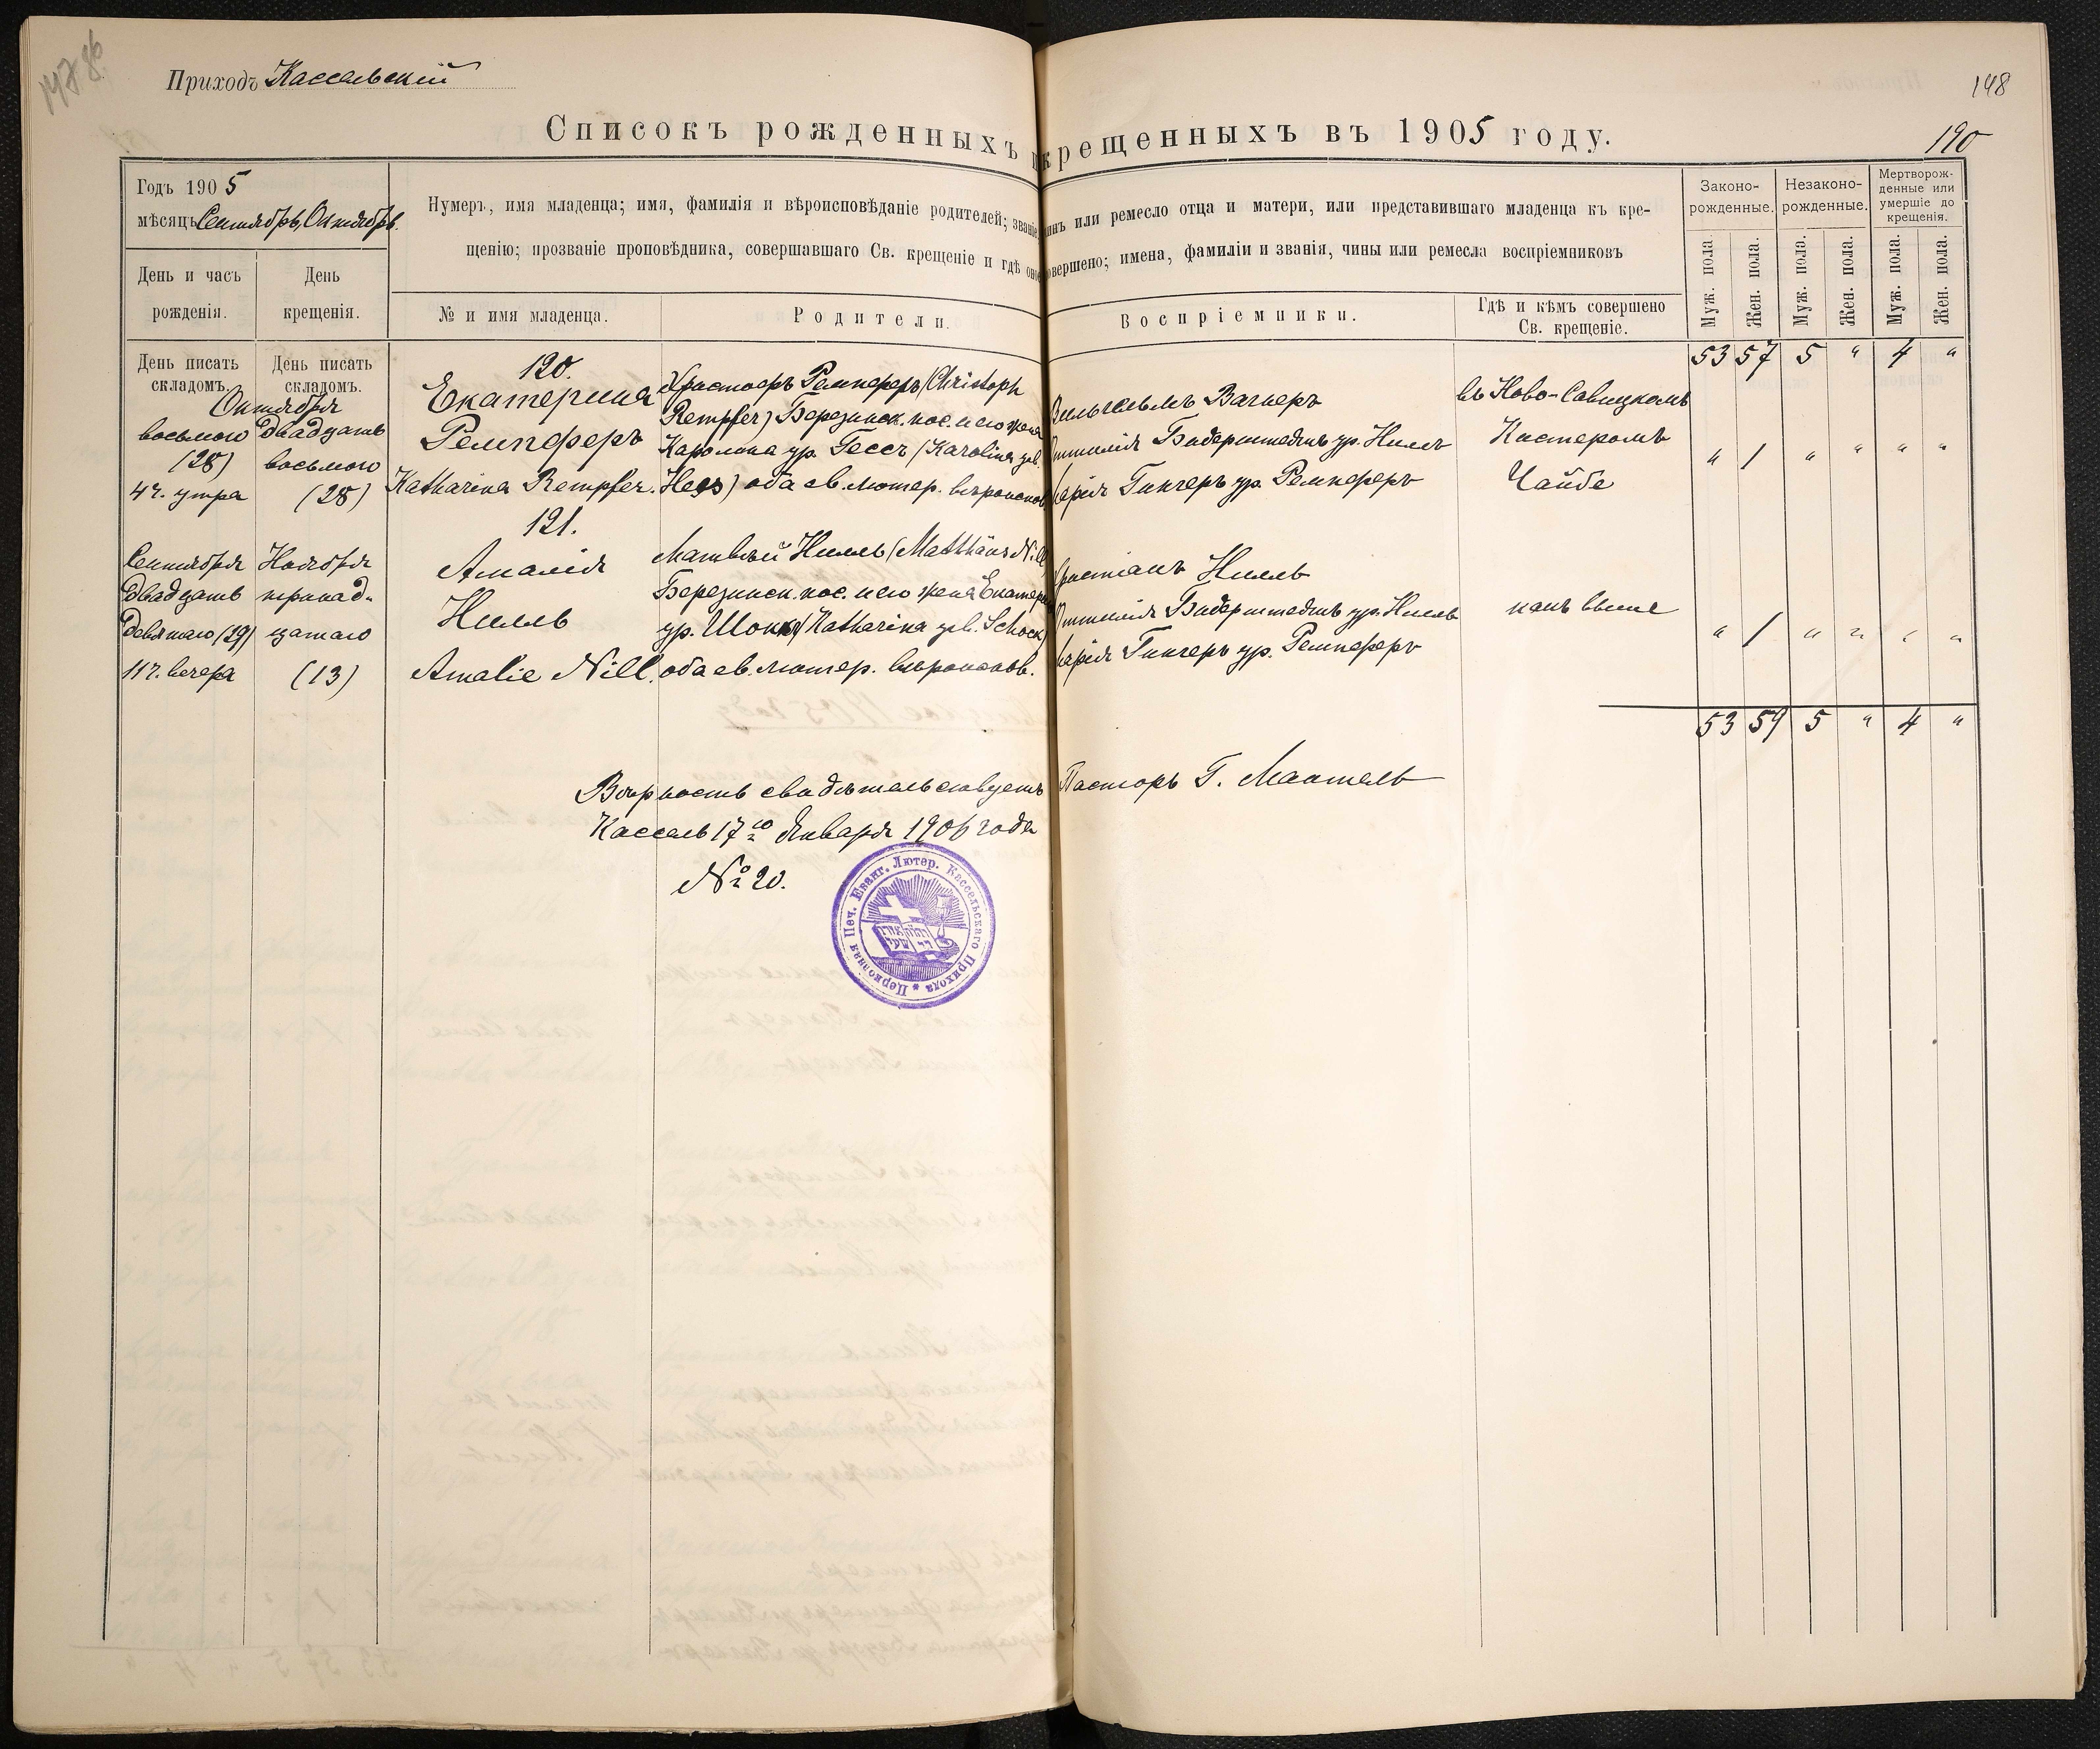 147 об
Приходъ Кассельскій
148
Списокъ рожденныхъ и крещенныхъ въ 1905 году.
190
Годъ 1905
мѣсяцъ Сентябрь, Октябрь.
Нумеръ, имя младенца; имя, фамилія и вѣроисповѣданіе родителей; званіе, чинъ или ремесло отца и матери, или представившаго младенца къ кре-
щенію; прозваніе проповѣдника, совершавшаго Св. крещеніе и гдѣ оное совершено; имена, фамиліи и званія, чины или ремесла воспріемниковъ
Законо-
рожденные.
Незаконо-
рожденные.
Мертворож-
денные или
умершіе до
крещенія.
День и часъ
рожденія.
День
крещенія.
№ и имя младенца.
Родители.
Воспріемники.
Гдѣ и кѣмъ совершено
Св. крещеніе.
Муж. пола.
Жен. пола.
Муж. пола.
Жен. пола.
Муж. пола.
Жен. пола.
День писать
складомъ.
День писать
складомъ.
53 57 5 " 4 "
Октября
восьмого
(28)
4 ч. утра
двадцать
восьмого
(28)
120.
Екатерина
Ремпферъ
Katharina Rempfer.
Христофъ Ремпферъ (Christoph
Rempfer) Березинск. пос. и его жена
Каролина ур. Гессъ (Karolina geb.
Hess) оба ев. лютер. вѣроисповѣд.
Вильгельмъ Вагнеръ
Оттилія Бидерштедтъ ур. Нилль
Марія Гингеръ ур. Ремпферъ
въ Ново-Савицкомъ
Кистеромъ
Чайбе
" 1 " " " "
Сентября
двадцать
девятаго (29)
11 ч. вечера
Ноября
тринад-
цатаго
(13)
121.
Амалія
Нилль
Amalie Nill.
Матвѣй Нилль (Matthäus Nill)
Березинск. пос. и его жена Екатерина
ур. Шокъ (Katharina geb. Schock)
оба ев. лютер. вѣроисповѣд.
Христіанъ Нилль
Оттилія Бидерштедтъ ур. Нилль
Марія Гингеръ ур. Ремпферъ
какъ выше
" 1 " " " "
53 59 5 " 4 "
Вѣрность свидѣтельствуетъ Пасторъ Г. Мантель
Кассель 17го Января 1906 года
№ 20.
Церковная Печ. Еванг. Лютер. Кассельскаго Прихода *